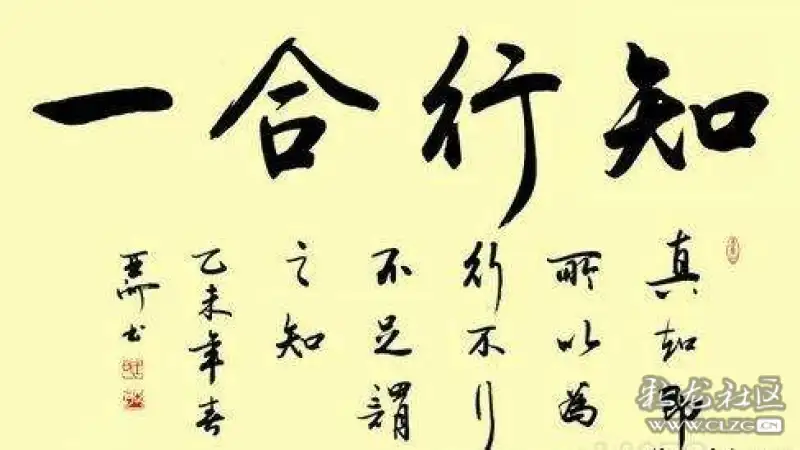 知行合一
真知即
所以為
行不行
不足謂
之知
乙未年春
书
彩龙社区
WWW.CLZG.CN